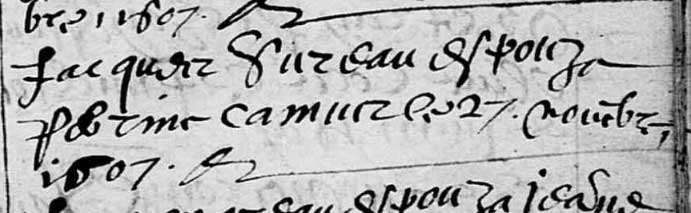 bre 1607.
Jacques Sureau espouza
Perrine Camus le 27. novẽbre,
1607.
espouza Jeanne